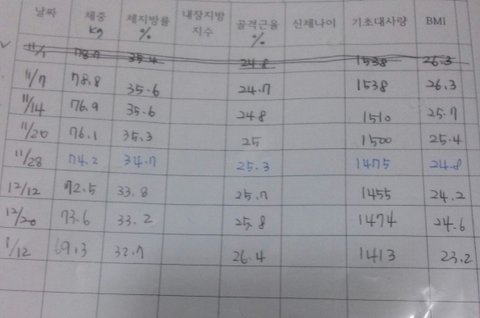 날짜 체중 kg 체지방률 % 내장지방 지수 골격근율 % 신체나이 기초대사량 BMI
11/1 78.7 35.4 24.8 1538 26.3
11/7 78.8 35.6 24.7 1538 26.3
11/14 76.9 35.6 24.8 1510 25.7
11/20 76.1 35.3 25 1500 25.4
11/28 74.2 34.7 25.3 1475 24.8
12/12 72.5 33.8 25.7 1455 24.2
12/20 73.6 33.2 25.8 1474 24.6
1/12 69.3 32.7 26.4 1413 23.2